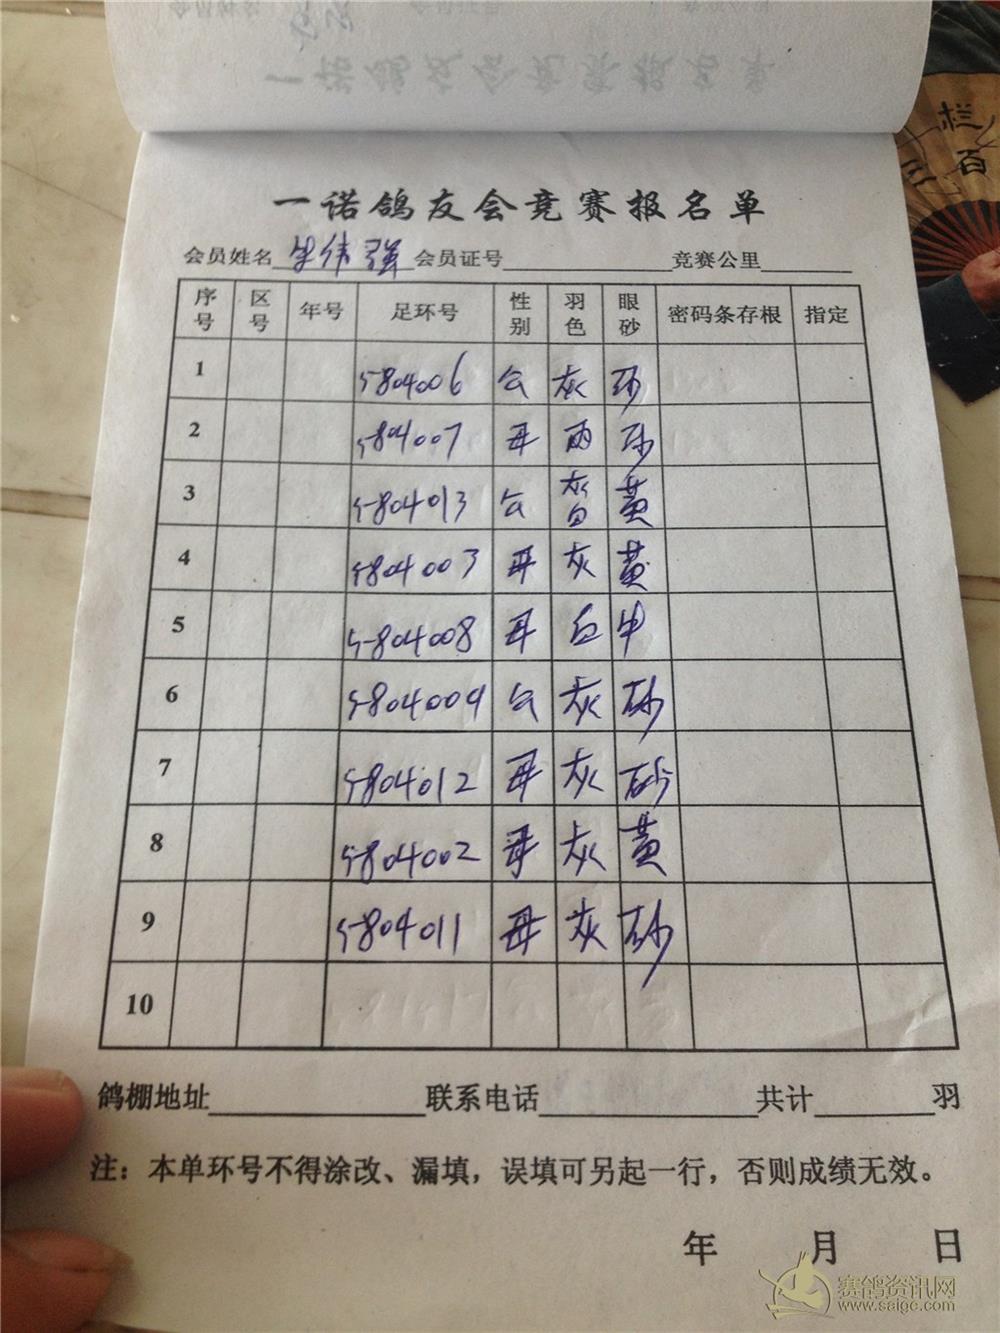 一诺鸽友会竞赛报名单
会员姓名 朱伟强 会员证号 竞赛公里
序号 区号 年号 足环号 性别 羽色 眼砂 密码条存根 指定
1 5804006 公 灰 砂
2 5804007 母 雨 砂
3 5804013 公 灰白 黄
4 5804003 母 灰 黄
5 5804008 母 白 牛
6 5804009 公 灰 砂
7 5804012 母 灰 砂
8 5804002 母 灰 黄
9 5804011 母 灰 砂
10
鸽棚地址 联系电话 共计 羽
注：本单环号不得涂改、漏填，误填可另起一行，否则成绩无效。
年 月 日
栏
三百
赛鸽资讯网
www.saige.com